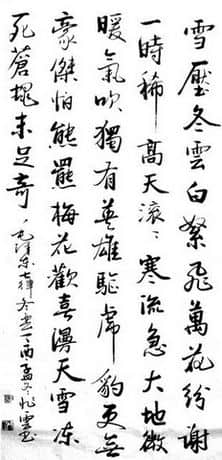 雪壓冬雲白絮飛萬花紛謝
一時稀高天滾〻寒流急大地微
暖氣吹獨有英雄驅虎豹更無
豪傑怕熊羆梅花歡喜漫天雪凍
死蒼蠅未足奇 毛澤東七律冬雲丁酉孟冬